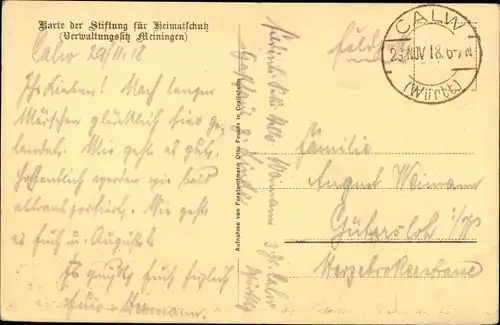 Karte der Stiftung für Heimatschutz
(Verwaltungssitz Meiningen)
Calw 29/11.18
Ihr Lieben! Nach langen
Märschen glücklich hier ge-
landet. Mir geht es gut.
Hoffentlich werden wir bald
abtransportiert. Wie geht
es Euch u. August?
Es grüßt Euch herzlich
Euer Hermann.
Aufnahme von Forstamtmann Otto Feucht in
z. Zt. Calw
CALW
NOV 18. 6-7 N
(Württb.)
Feldpost
Familie
August Weimann
Gütersloh i/W